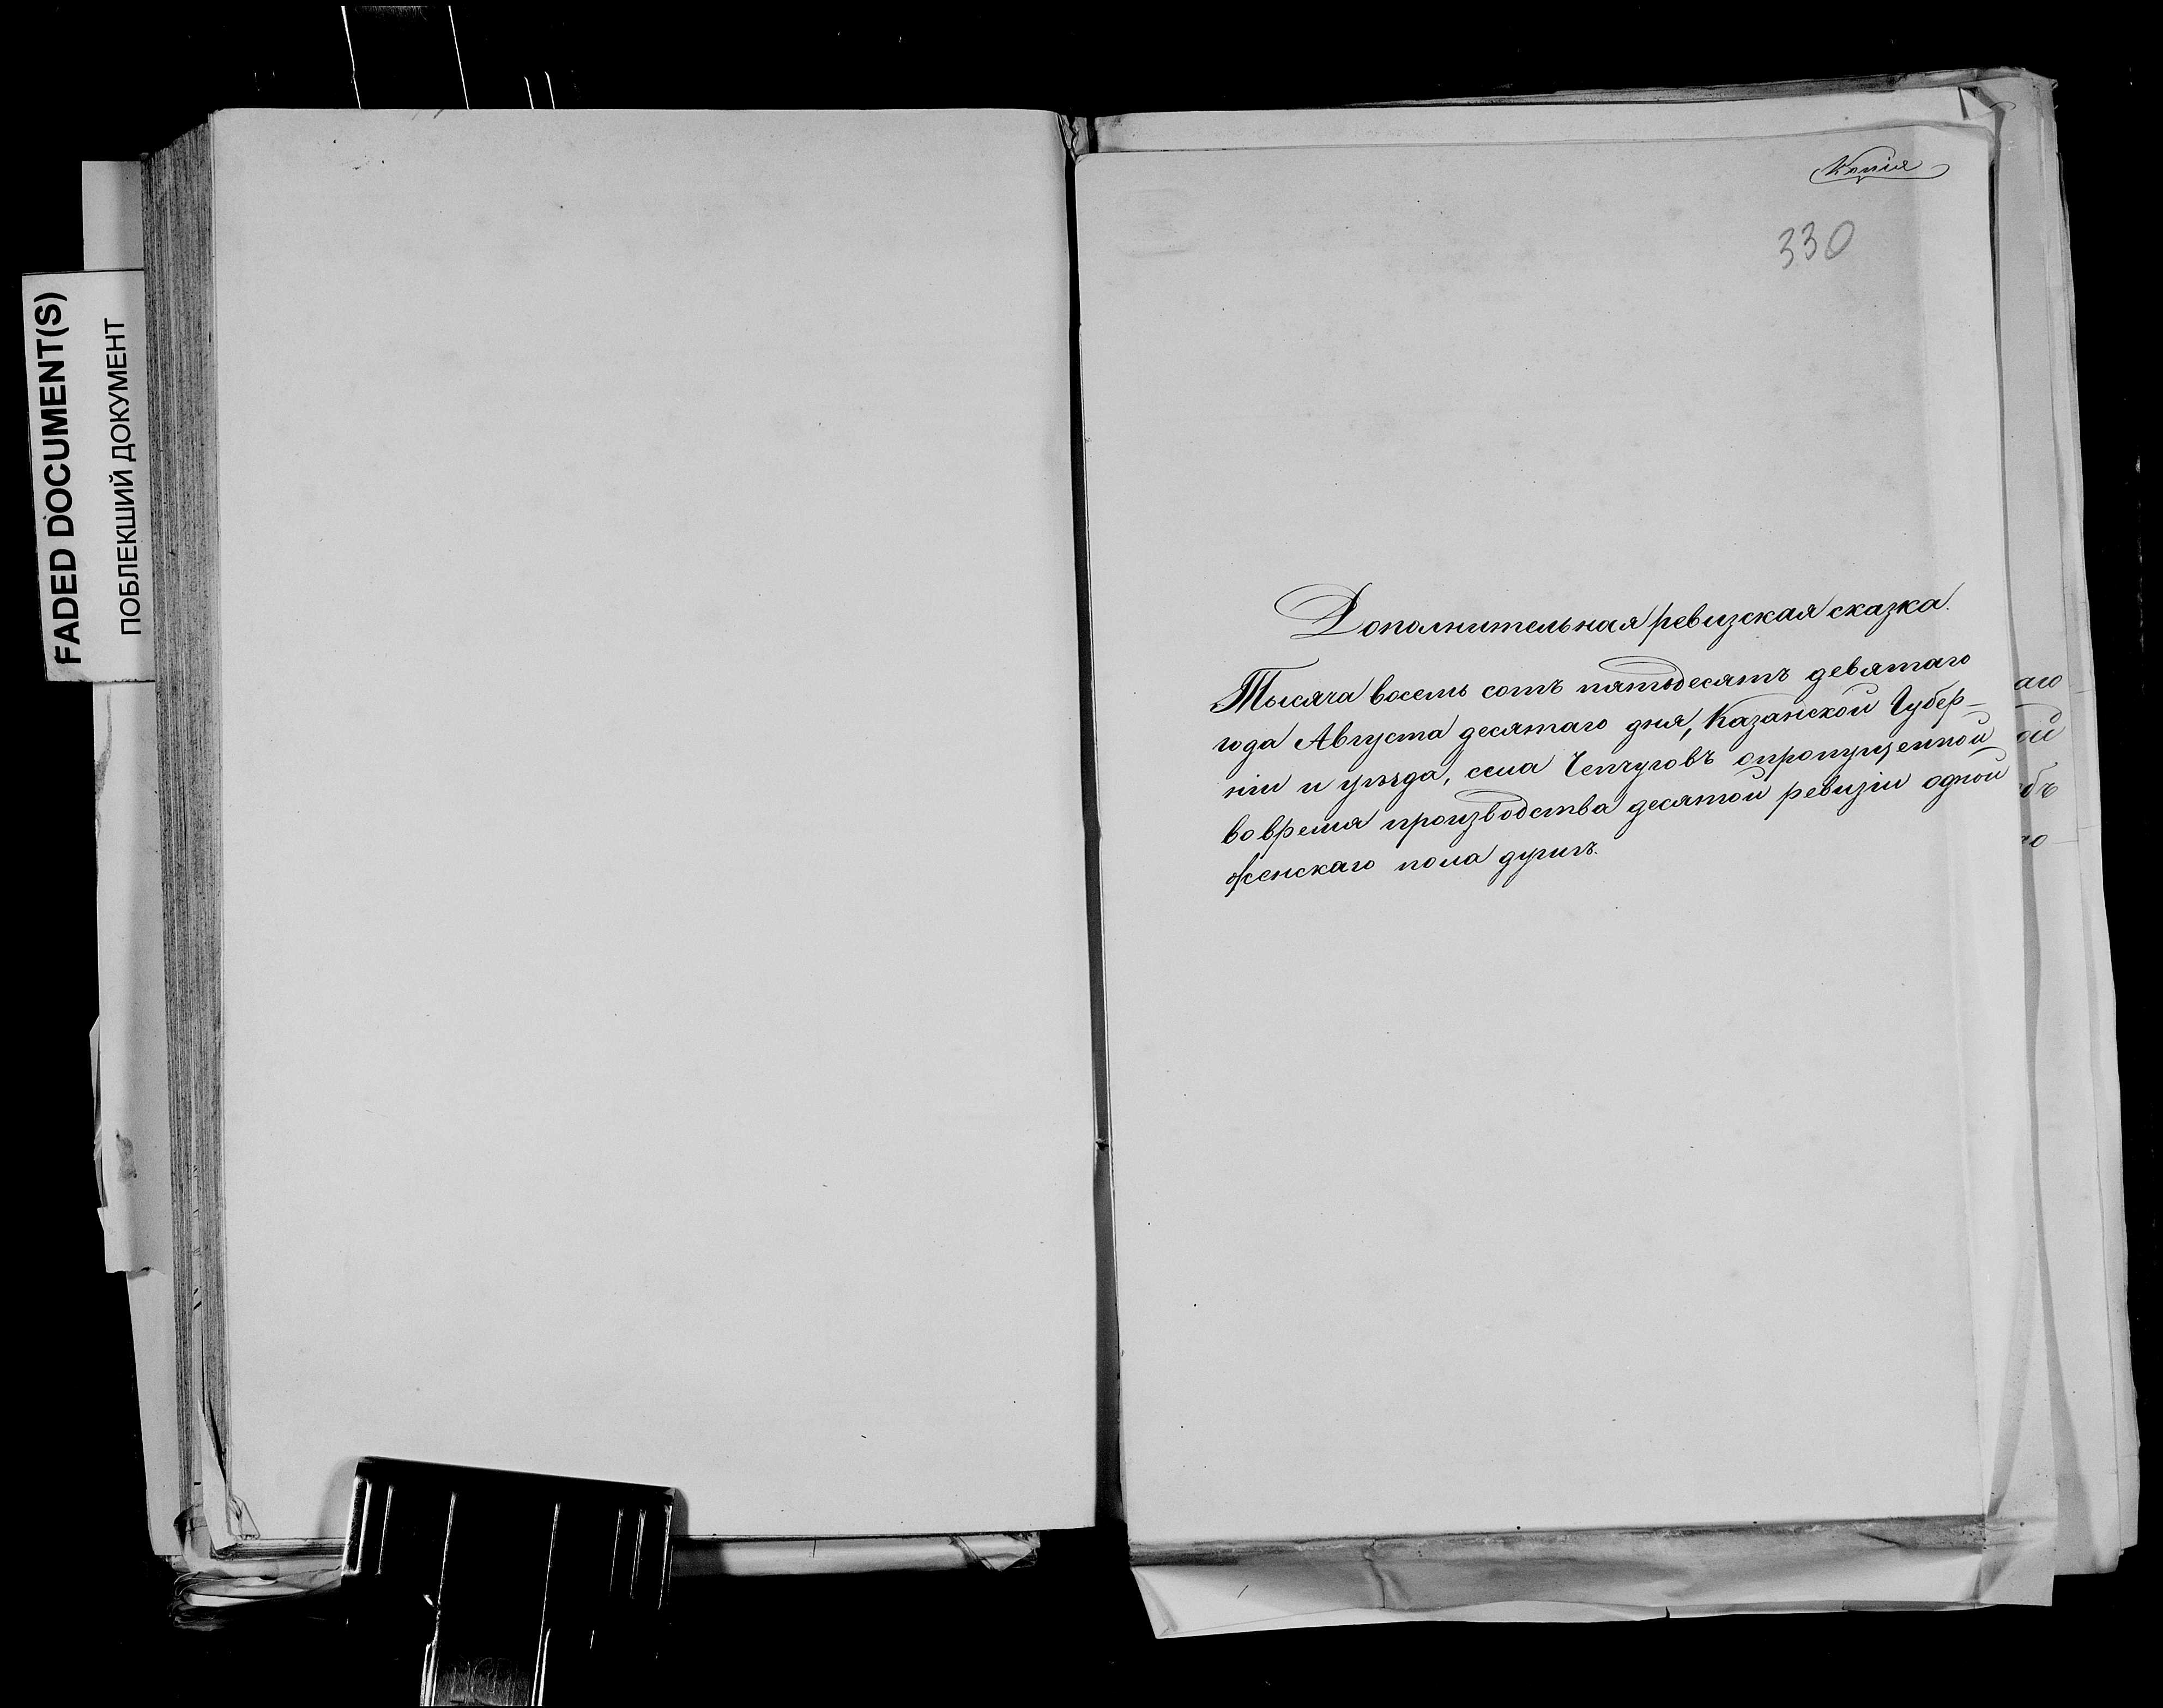 FADED DOCUMENT(S)
ПОБЛЕКШИЙ ДОКУМЕНТ
Копія
330
Дополнительная ревизская сказка.
Тысяча восемь сотъ пятьдесятъ девятаго
года Августа десятаго дня, Казанской Губер-
ніи и уѣзда, села Чепчуговъ опропущенной
во время производства десятой ревизіи одной
женскаго пола душъ.
аго
ой
объ
го